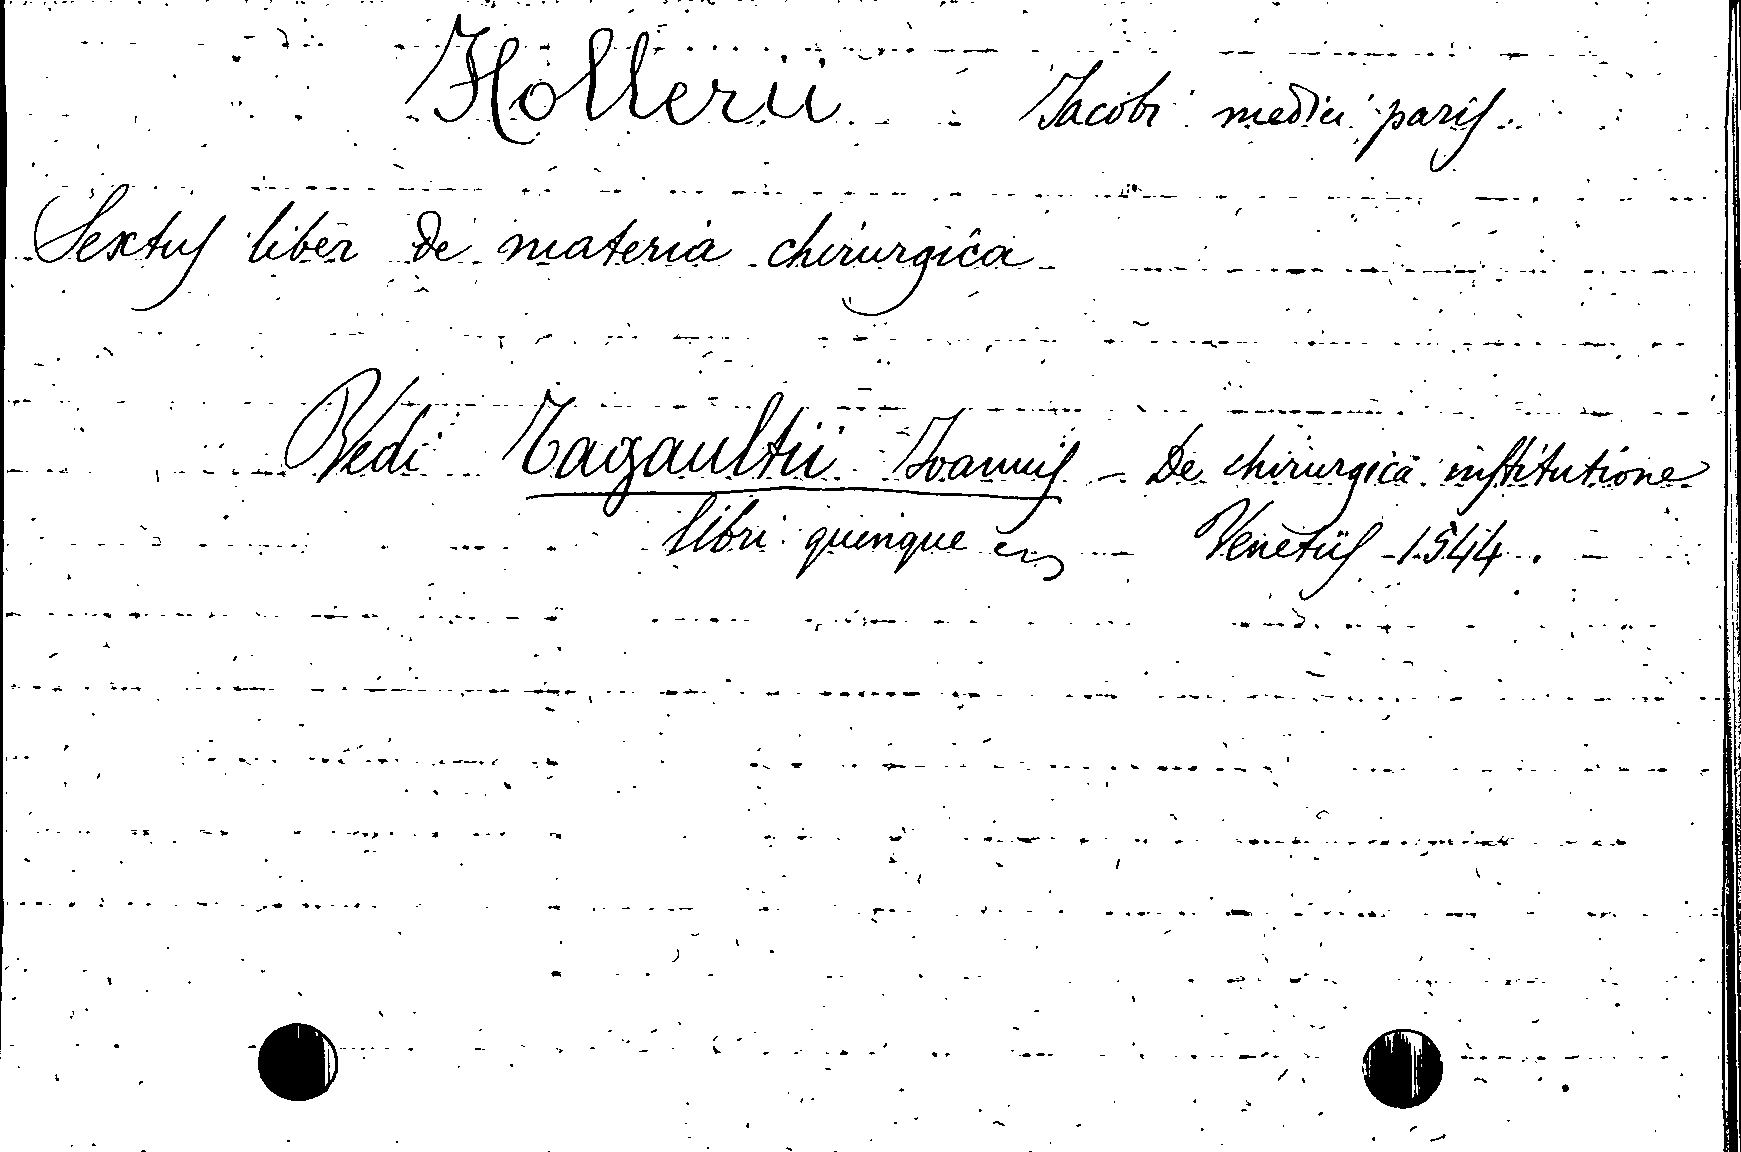 Hollerii Jacobi medici paris.
Sextus liber de materia chirurgica
Vedi Tagaultii Joannis - De chirurgica institutione
libri quinque Venetiis 1544.